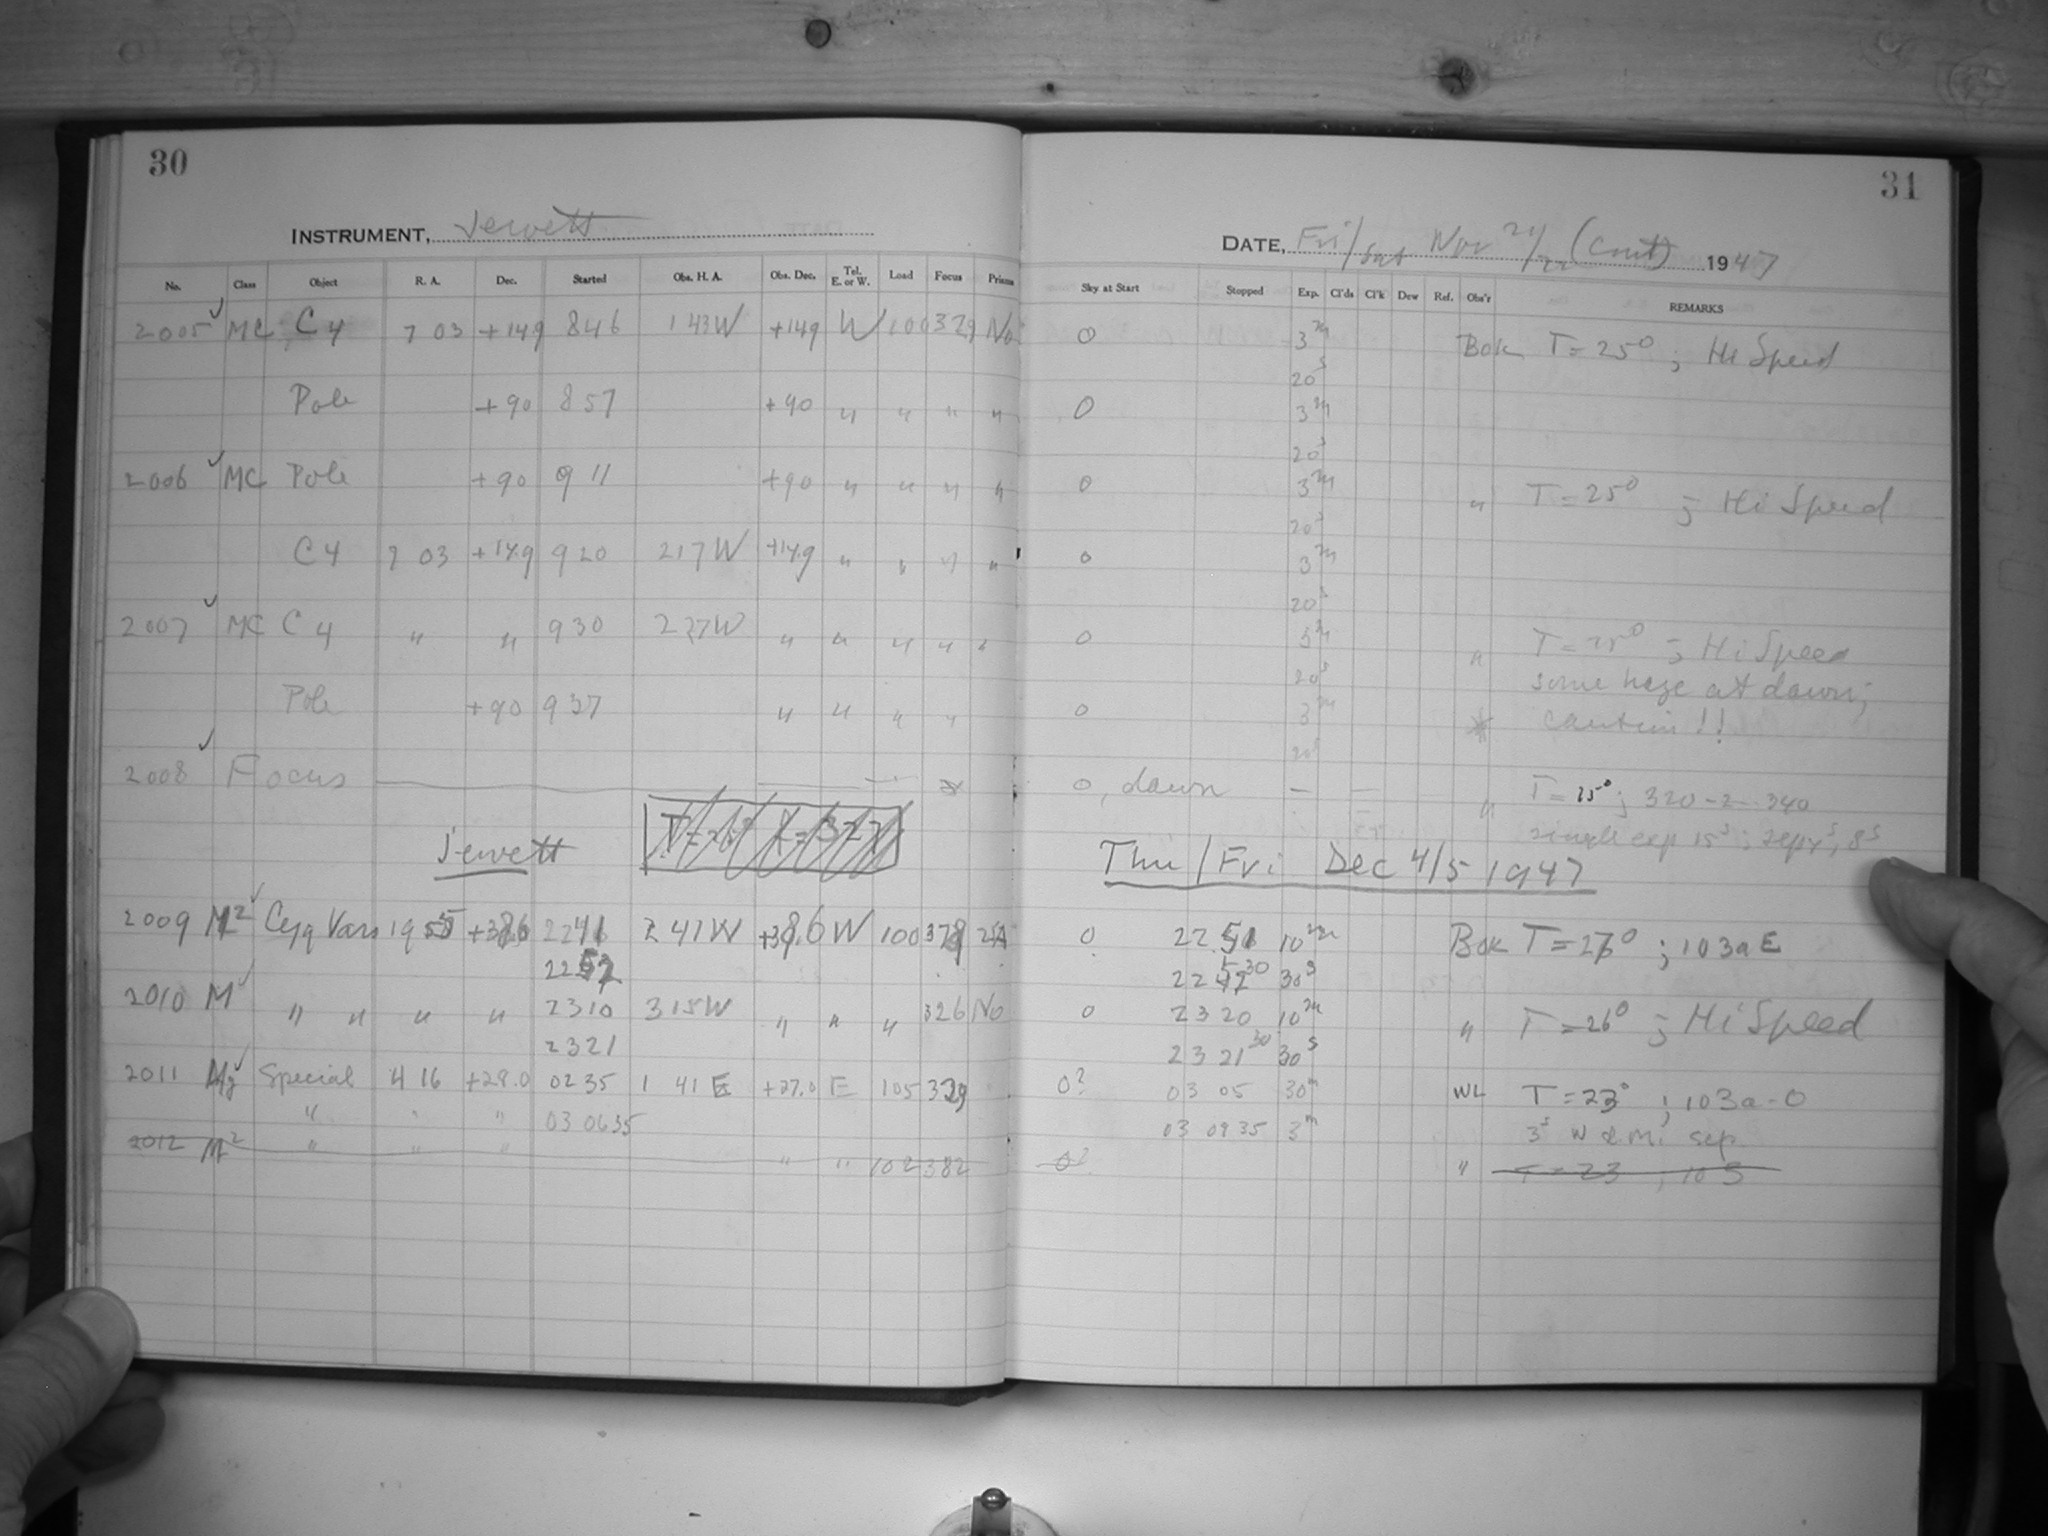 30
31
INSTRUMENT, Jewett
DATE, Fri/Sat Nov 21/22 (Cont) 1947
No. Class Object R. A. Dec. Started Obs. H. A. Obs. Dec. Tel. E. or W. Load Focus Prism Sky at Start Stopped Exp. Cl'ds Cl'k Dew Ref. Obs'r REMARKS
2005 ✓ MC C4 7 03 +14.9 8 46 1 43W +14.9 W 100 329 No 0 3m Bok T = 25° ; Hi Speed
20s
Pole +90 8 57 +90 " " " " 0 3m
20s
2006 ✓ MC Pole +90 9 11 +90 " " " " 0 3m " T = 25° ; Hi Speed
20s
C4 7 03 +14.9 9 20 2 17W +14.9 " " " " 0 3m
20s
2007 ✓ MC C4 " " 9 30 2 27W " " " " " 0 3m " T = 25° ; Hi Speed
20s some haze at dawn;
Pole +90 9 37 " " " " 0 3m * caution!!
20s
2008 ✓ Focus * 0, dawn — — " T = 25° ; 320-2-340
single exp 15s ; 8s
Jewett
Thu/Fri Dec 4/5 1947
2009 M2 ✓ Cyg Vars 19 55 +38.6 22 41 2 41W +38.6 W 100 378 0 22 51 10m Bok T = 26° ; 103aE
22 52 22 52 30 30s
2010 M ✓ " " " " 23 10 3 15W " " " 326 No 0 23 20 10m " T = 26° ; Hi Speed
23 21 23 21 30 30s
2011 ✓ Special 4 16 +28.0 02 35 1 41 E +27.0 E 105 329 0? 03 05 30m WL T = 23° ; 103a-O
" " " 03 06 35 03 09 35 3m 3s W sep
2012 M2 " " " " " 102 382 0? " T = 23 ; 103